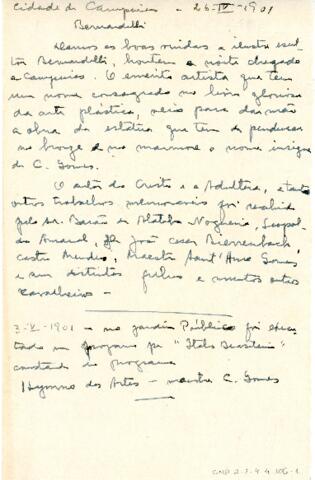 Cidade de Campinas - 26-IV-1901
Bernardelli
Damos as boas vindas a ilustre escul
tor Bernardelli, hontem a noite chegado
a Campinas. O emerito artista que tem
um nome consagrado no livro glorioso
da arte plástica, veio para dar mão
a obra da estatua que tem de perdurar
no bronze e no marmore o nome insigne
de C. Gomes.
O autor do Cristo e a Adultera, e tantos
outros trabalhos memoraveis foi recebido
pelo Sr. Barão de Ataliba Nogueira, Leopol
do Amaral, Dr. João Cesar Bierrenbach,
Castro Mendes, Maestro Sant'Anna Gomes
e seus distintos filhos e muitos outros
cavalheiros -
3-V-1901 - no jardim Público foi execu
tado um programa pr "Italo Brasileira"
constando do programa
Hymno das Artes - maestro C. Gomes
CMP 2.3.4.4.106-1